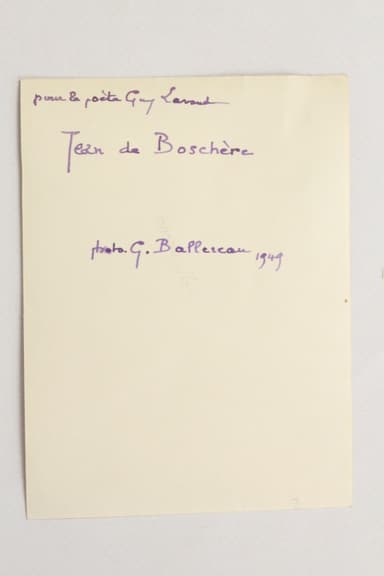 pour le poète Guy Lavaud
Jean de Boschère
photo G. Ballereau 1949